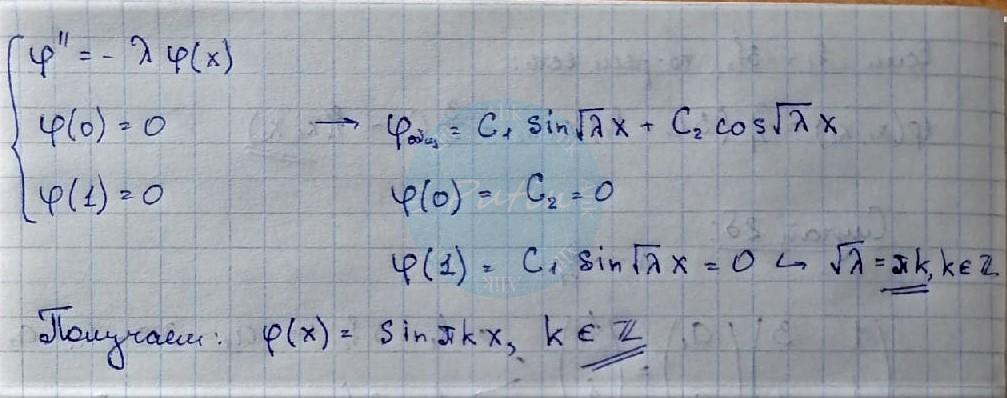 φ'' = - λ φ(x)
φ(0) = 0 → φобщ = C₁ sin√λ x + C₂ cos√λ x
φ(1) = 0 φ(0) = C₂ = 0
φ(1) = C₁ sin√λ x = 0 ↪ √λ = πk, k ∈ ℤ
Получаем: φ(x) = sin πkx, k ∈ ℤ